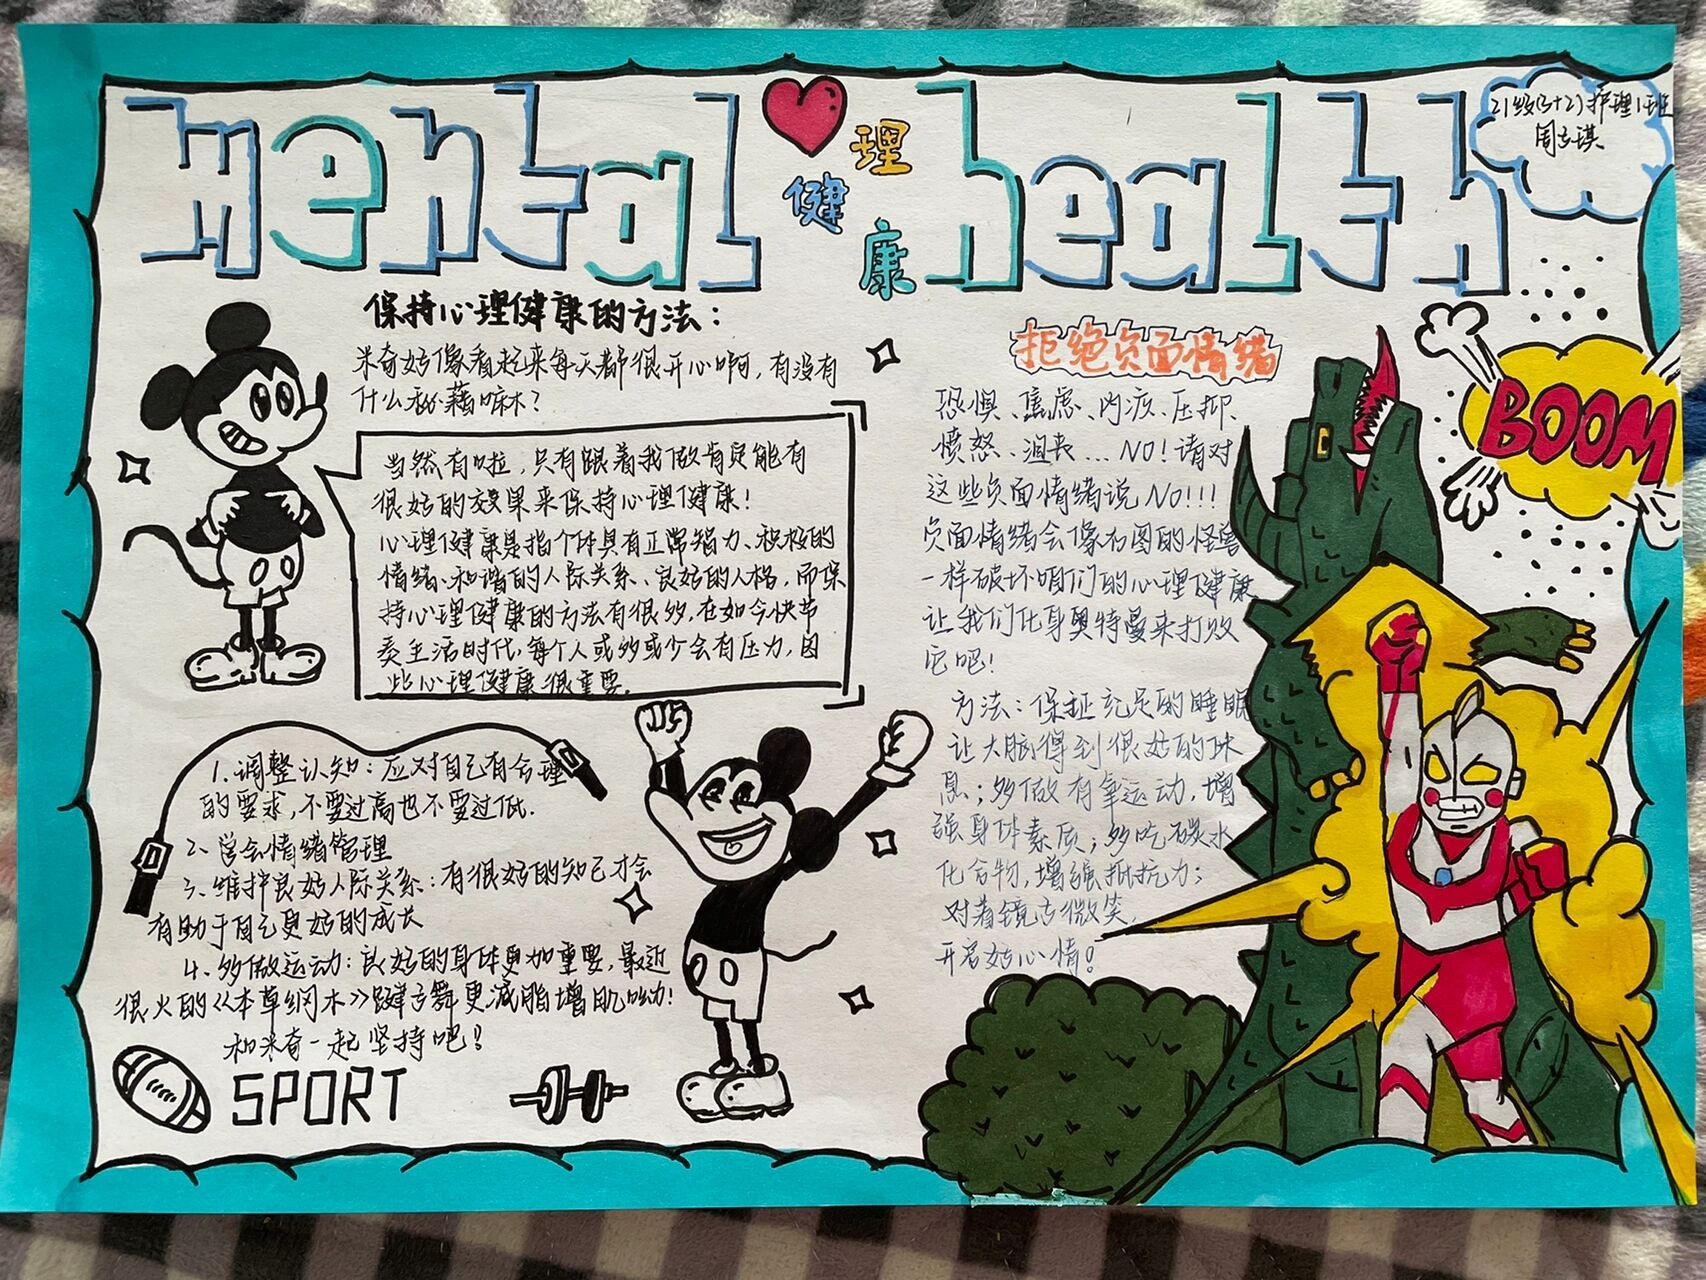 Mental health
理
健
康
21级(3+2)护理1班
保持心理健康的方法：
米奇好像看起来每天都很开心啊，有没有
什么秘藉嘛？
当然有啦，只有跟着我做肯定能有
很好的效果来保持心理健康！
心理健康是指个体具有正常智力、积极的
情绪、和谐的人际关系、良好的人格，而保
持心理健康的方法有很多，在如今快节
奏生活时代，每个人或多或少会有压力，因
此心理健康很重要。
1.调整认知：应对自己有合理
的要求，不要过高也不要过低.
2、学会情绪管理
3、维护良好人际关系：有很好的知己才会
有助于自己更好的成长
4、多做运动：良好的身体更加重要，最近
很火的《本草纲木》毽子舞更减脂增肌呦！
和米奇一起坚持吧！
SPORT
拒绝负面情绪
恐惧、焦虑、内疚、压抑、
愤怒、沮丧...NO！请对
这些负面情绪说NO!!!
负面情绪会像右图的怪兽
一样破坏咱们的心理健康
让我们化身奥特曼来打败
它吧！
方法：保证充足的睡眠
让大脑得到很好的休
息；多做有氧运动，增
强身体素质；多吃碳水
化合物，增强抵抗力；
对着镜子微笑，
开启好心情！
BOOM